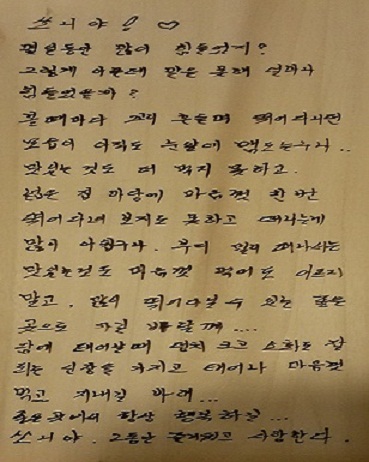 쓰시야! ♡
많이 힘들었지?
그렇게 아픈데 말은 못해 얼마나
힘들었을까?
볼때마다 꼬리 흔들며 뛰어다니던
모습이 아직도 눈앞에 맴도는구나..
맛있는것도 더 먹지 못하고.
넓은 집 마당에 마음껏 한번
뛰어다녀 보지도 못하고 떠나는게
많이 아쉽구나. 부디 멀리 떠나서는
맛있는것도 마음껏 먹어도 아프지
말고. 맘껏 뛰어다닐 수 있는 좋은
곳으로 가길 바랄께....
담에 태어날때 덩치 크고 소화도 잘
되는 심장을 가지고 태어나 마음껏
먹고 지내길 바래...
좋은곳에서 항상 행복하길...
쓰시야. 그동안 즐거웠고 사랑한다.